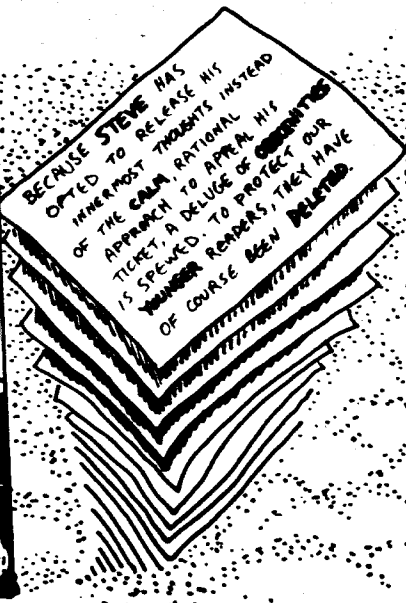 BECAUSE STEVE HAS
OPTED TO RELEASE HIS
INNERMOST THOUGHTS INSTEAD
OF THE CALM, RATIONAL
APPROACH TO APPEAL HIS
TICKET, A DELUGE OF OBSCENITIES
IS SPEWED. TO PROTECT OUR
YOUNGER READERS, THEY HAVE
OF COURSE BEEN DELETED.